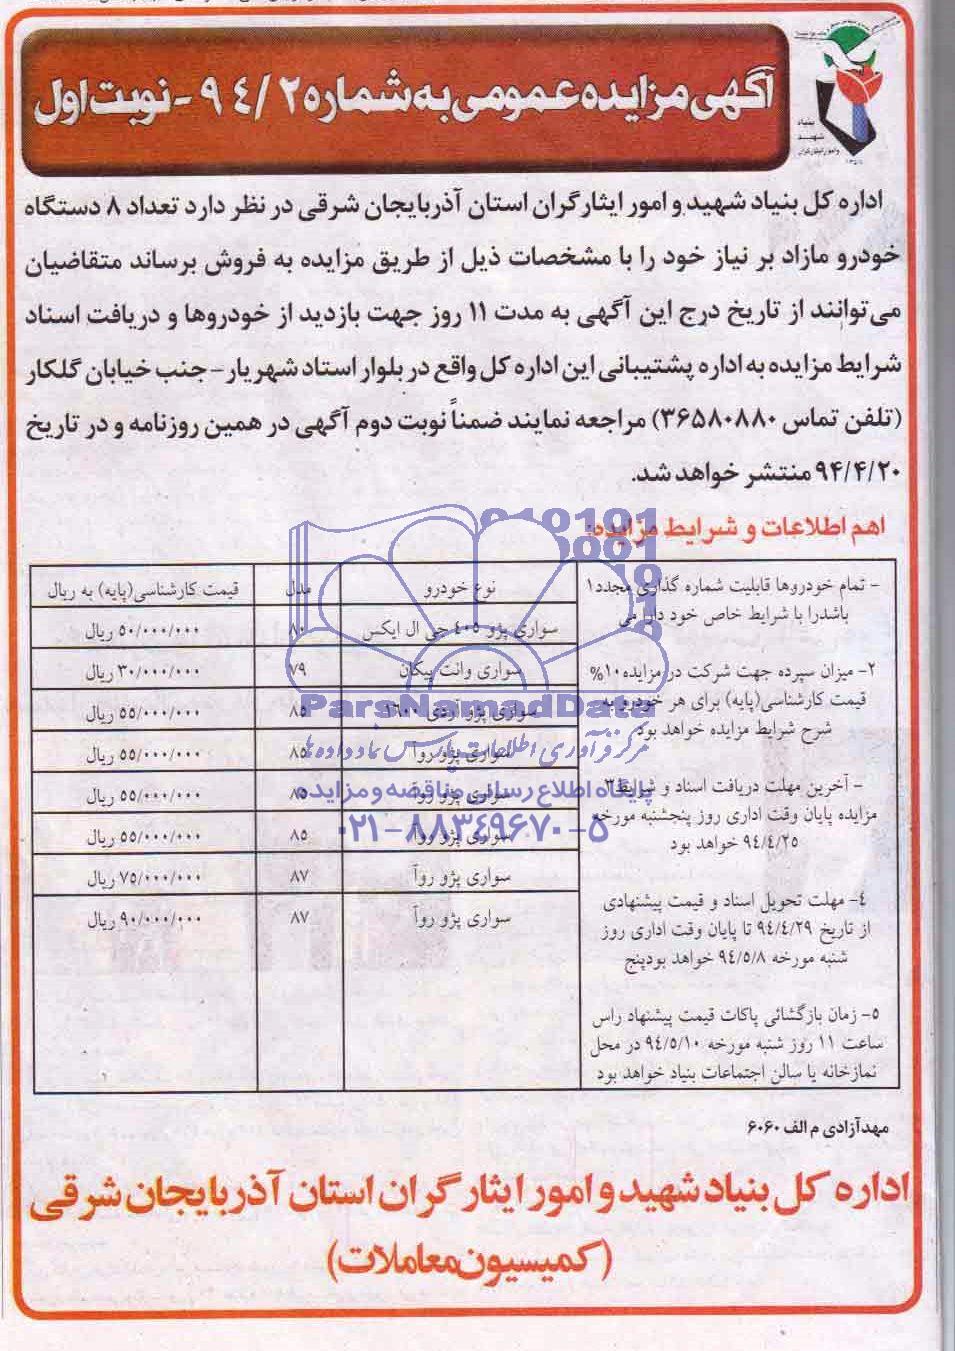 آگهی مزایده عمومی به شماره ۹۴/۲ - نوبت اول
بنیاد
شهید
و امور ایثارگران
اداره کل بنیاد شهید و امور ایثارگران استان آذربایجان شرقی در نظر دارد تعداد ۸ دستگاه
خودرو مازاد بر نیاز خود را با مشخصات ذیل از طریق مزایده به فروش برساند متقاضیان
می‌توانند از تاریخ درج این آگهی به مدت ۱۱ روز جهت بازدید از خودروها و دریافت اسناد
شرایط مزایده به اداره پشتیبانی این اداره کل واقع در بلوار استاد شهریار - جنب خیابان گلکار
(تلفن تماس ۳۶۵۸۰۸۸۰) مراجعه نمایند ضمناً نوبت دوم آگهی در همین روزنامه و در تاریخ
۹۴/۴/۲۰ منتشر خواهد شد.
اهم اطلاعات و شرایط مزایده:
- تمام خودروها قابلیت شماره گذاری مجدد۱
باشدرا با شرایط خاص خود دارا می
۲- میزان سپرده جهت شرکت در مزایده۱۰%
قیمت کارشناسی(پایه) برای هر خودرو به
شرح شرایط مزایده خواهد بود
- آخرین مهلت دریافت اسناد و شرایط۳
مزایده پایان وقت اداری روز پنجشنبه مورخه
۹۴/۴/۲۵ خواهد بود
۴- مهلت تحویل اسناد و قیمت پیشنهادی
از تاریخ ۹۴/۴/۲۹ تا پایان وقت اداری روز
شنبه مورخه ۹۴/۵/۸ خواهد بودپنج
۵- زمان بازگشائی پاکات قیمت پیشنهاد راس
ساعت ۱۱ روز شنبه مورخه ۹۴/۵/۱۰ در محل
نمازخانه یا سالن اجتماعات بنیاد خواهد بود
نوع خودرو مدل قیمت کارشناسی(پایه) به ریال
سواری پژو ۴۰۵ جی ال ایکس ۸۰ ۵۰/۰۰۰/۰۰۰ ریال
سواری وانت پیکان ۷۹ ۳۰/۰۰۰/۰۰۰ ریال
سواری پژو آردی ۱۶۰۰ ۸۵ ۵۵/۰۰۰/۰۰۰ ریال
سواری پژو روآ ۸۵ ۵۵/۰۰۰/۰۰۰ ریال
سواری پژو روآ ۸۵ ۵۵/۰۰۰/۰۰۰ ریال
سواری پژو روآ ۸۵ ۵۵/۰۰۰/۰۰۰ ریال
سواری پژو روآ ۸۷ ۷۵/۰۰۰/۰۰۰ ریال
سواری پژو روآ ۸۷ ۹۰/۰۰۰/۰۰۰ ریال
ParsNamadData
مرکز فرآوری اطلاعات پارس نماد داده ها
پایگاه اطلاع رسانی مناقصه و مزایده
۰۲۱-۸۸۳۴۹۶۷۰-۵
مهدآزادی م الف ۶۰۶۰
اداره کل بنیاد شهید و امور ایثارگران استان آذربایجان شرقی
(کمیسیون معاملات)